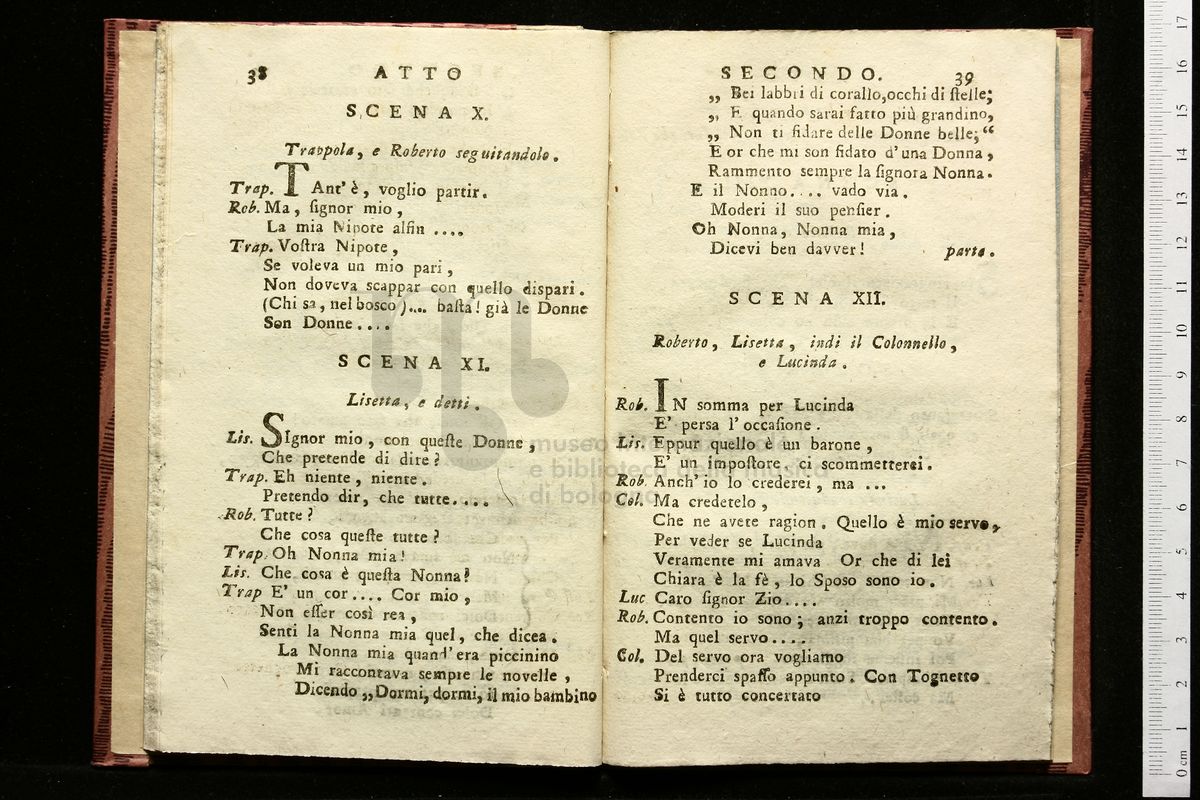 38 ATTO
SCENA X.
Trappola, e Roberto seguitandolo.
Trap. TAnt' è, voglio partir.
Rob. Ma, ſignor mio,
La mia Nipote alfin ....
Trap. Voſtra Nipote,
Se voleva un mio pari,
Non doveva scappar con quello dispari.
(Chi sa, nel bosco).... baſta! già le Donne
Son Donne....
SCENA XI.
Lisetta, e detti.
Lis. SIgnor mio, con queſte Donne,
Che pretende di dire?
Trap. Eh niente, niente.
Pretendo dir, che tutte....
Rob. Tutte?
Che cosa queſte tutte?
Trap. Oh Nonna mia!
Lis. Che cosa è queſta Nonna?
Trap E' un cor.... Cor mio,
Non eſſer così rea,
Senti la Nonna mia quel, che dicea.
La Nonna mia quand' era piccinino
Mi raccontava sempre le novelle,
Dicendo „Dormi, dormi, il mio bambino
SECONDO. 39
„ Bei labbri di corallo, occhi di ſtelle;
„ E quando sarai fatto più grandino,
„ Non ti fidare delle Donne belle;“
E or che mi son fidato d'una Donna,
Rammento sempre la ſignora Nonna.
E il Nonno.... vado via.
Moderi il suo penſier.
Oh Nonna, Nonna mia,
Dicevi ben davver! parte.
SCENA XII.
Roberto, Lisetta, indi il Colonnello,
e Lucinda.
Rob. IN somma per Lucinda
E' persa l' occaſione.
Lis. Eppur quello è un barone,
E' un impoſtore, ci scommetterei.
Rob. Anch' io lo crederei, ma ...
Col. Ma credetelo,
Che ne avete ragion. Quello è mio servo,
Per veder se Lucinda
Veramente mi amava Or che di lei
Chiara è la fè, lo Sposo sono io.
Luc Caro ſignor Zio....
Rob. Contento io sono; anzi troppo contento.
Ma quel servo....
Col. Del servo ora vogliamo
Prenderci spaſſo appunto. Con Tognetto
Si è tutto concertato
museo internazionale
e biblioteca della musica
di bologna
0 cm 1 2 3 4 5 6 7 8 9 10 11 12 13 14 15 16 17